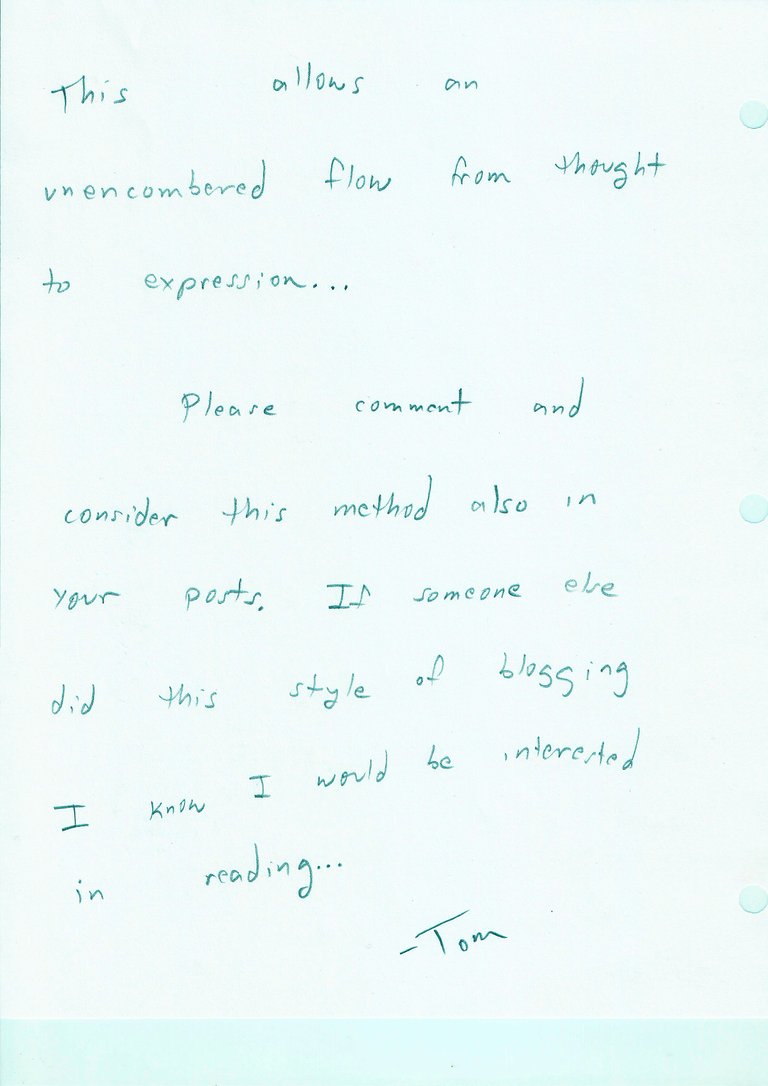 This allows an
unencombered flow from thought
to expression...
Please comment and
consider this method also in
your posts. If someone else
did this style of blogging
I know I would be interested
in reading...
-Tom